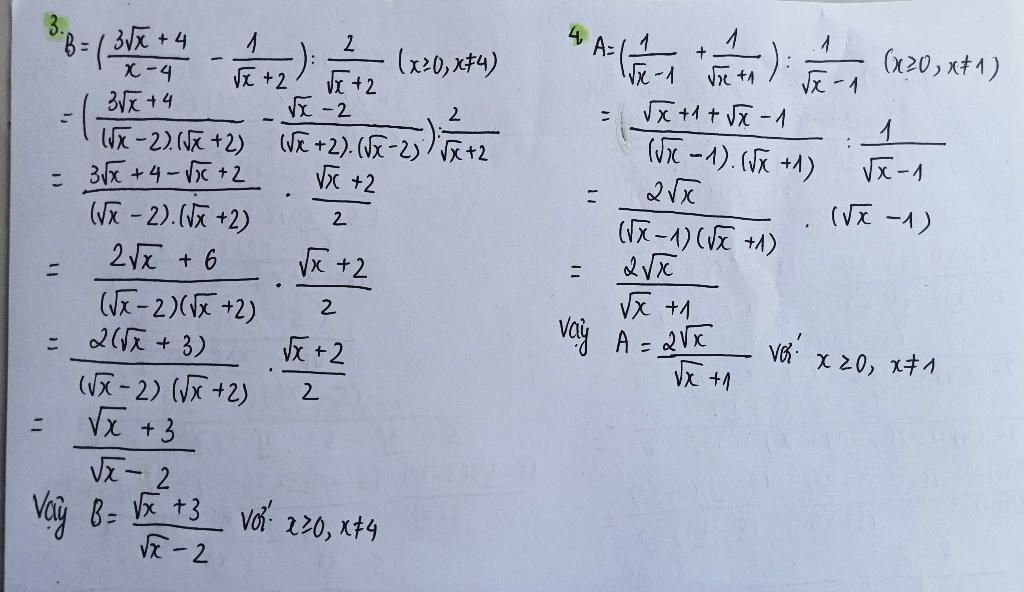 3.
B = ( (3√x + 4)/(x - 4) - 1/(√x + 2) ) : 2/(√x + 2) (x ≥ 0, x ≠ 4)
= ( (3√x + 4)/((√x - 2).(√x + 2)) - (√x - 2)/((√x + 2).(√x - 2)) ) : 2/(√x + 2)
= (3√x + 4 - √x + 2)/((√x - 2).(√x + 2)) . (√x + 2)/2
= (2√x + 6)/((√x - 2)(√x + 2)) . (√x + 2)/2
= 2(√x + 3)/((√x - 2)(√x + 2)) . (√x + 2)/2
= (√x + 3)/(√x - 2)
Vậy B = (√x + 3)/(√x - 2) với x ≥ 0, x ≠ 4
4.
A = ( 1/(√x - 1) + 1/(√x + 1) ) : 1/(√x - 1) (x ≥ 0, x ≠ 1)
= (√x + 1 + √x - 1)/((√x - 1).(√x + 1)) : 1/(√x - 1)
= 2√x/((√x - 1)(√x + 1)) . (√x - 1)
= 2√x/(√x + 1)
Vậy A = 2√x/(√x + 1) với x ≥ 0, x ≠ 1